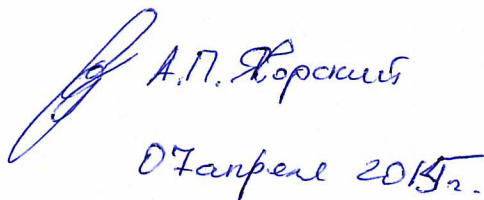 А.П. Яворский
07 апреля 2015г.